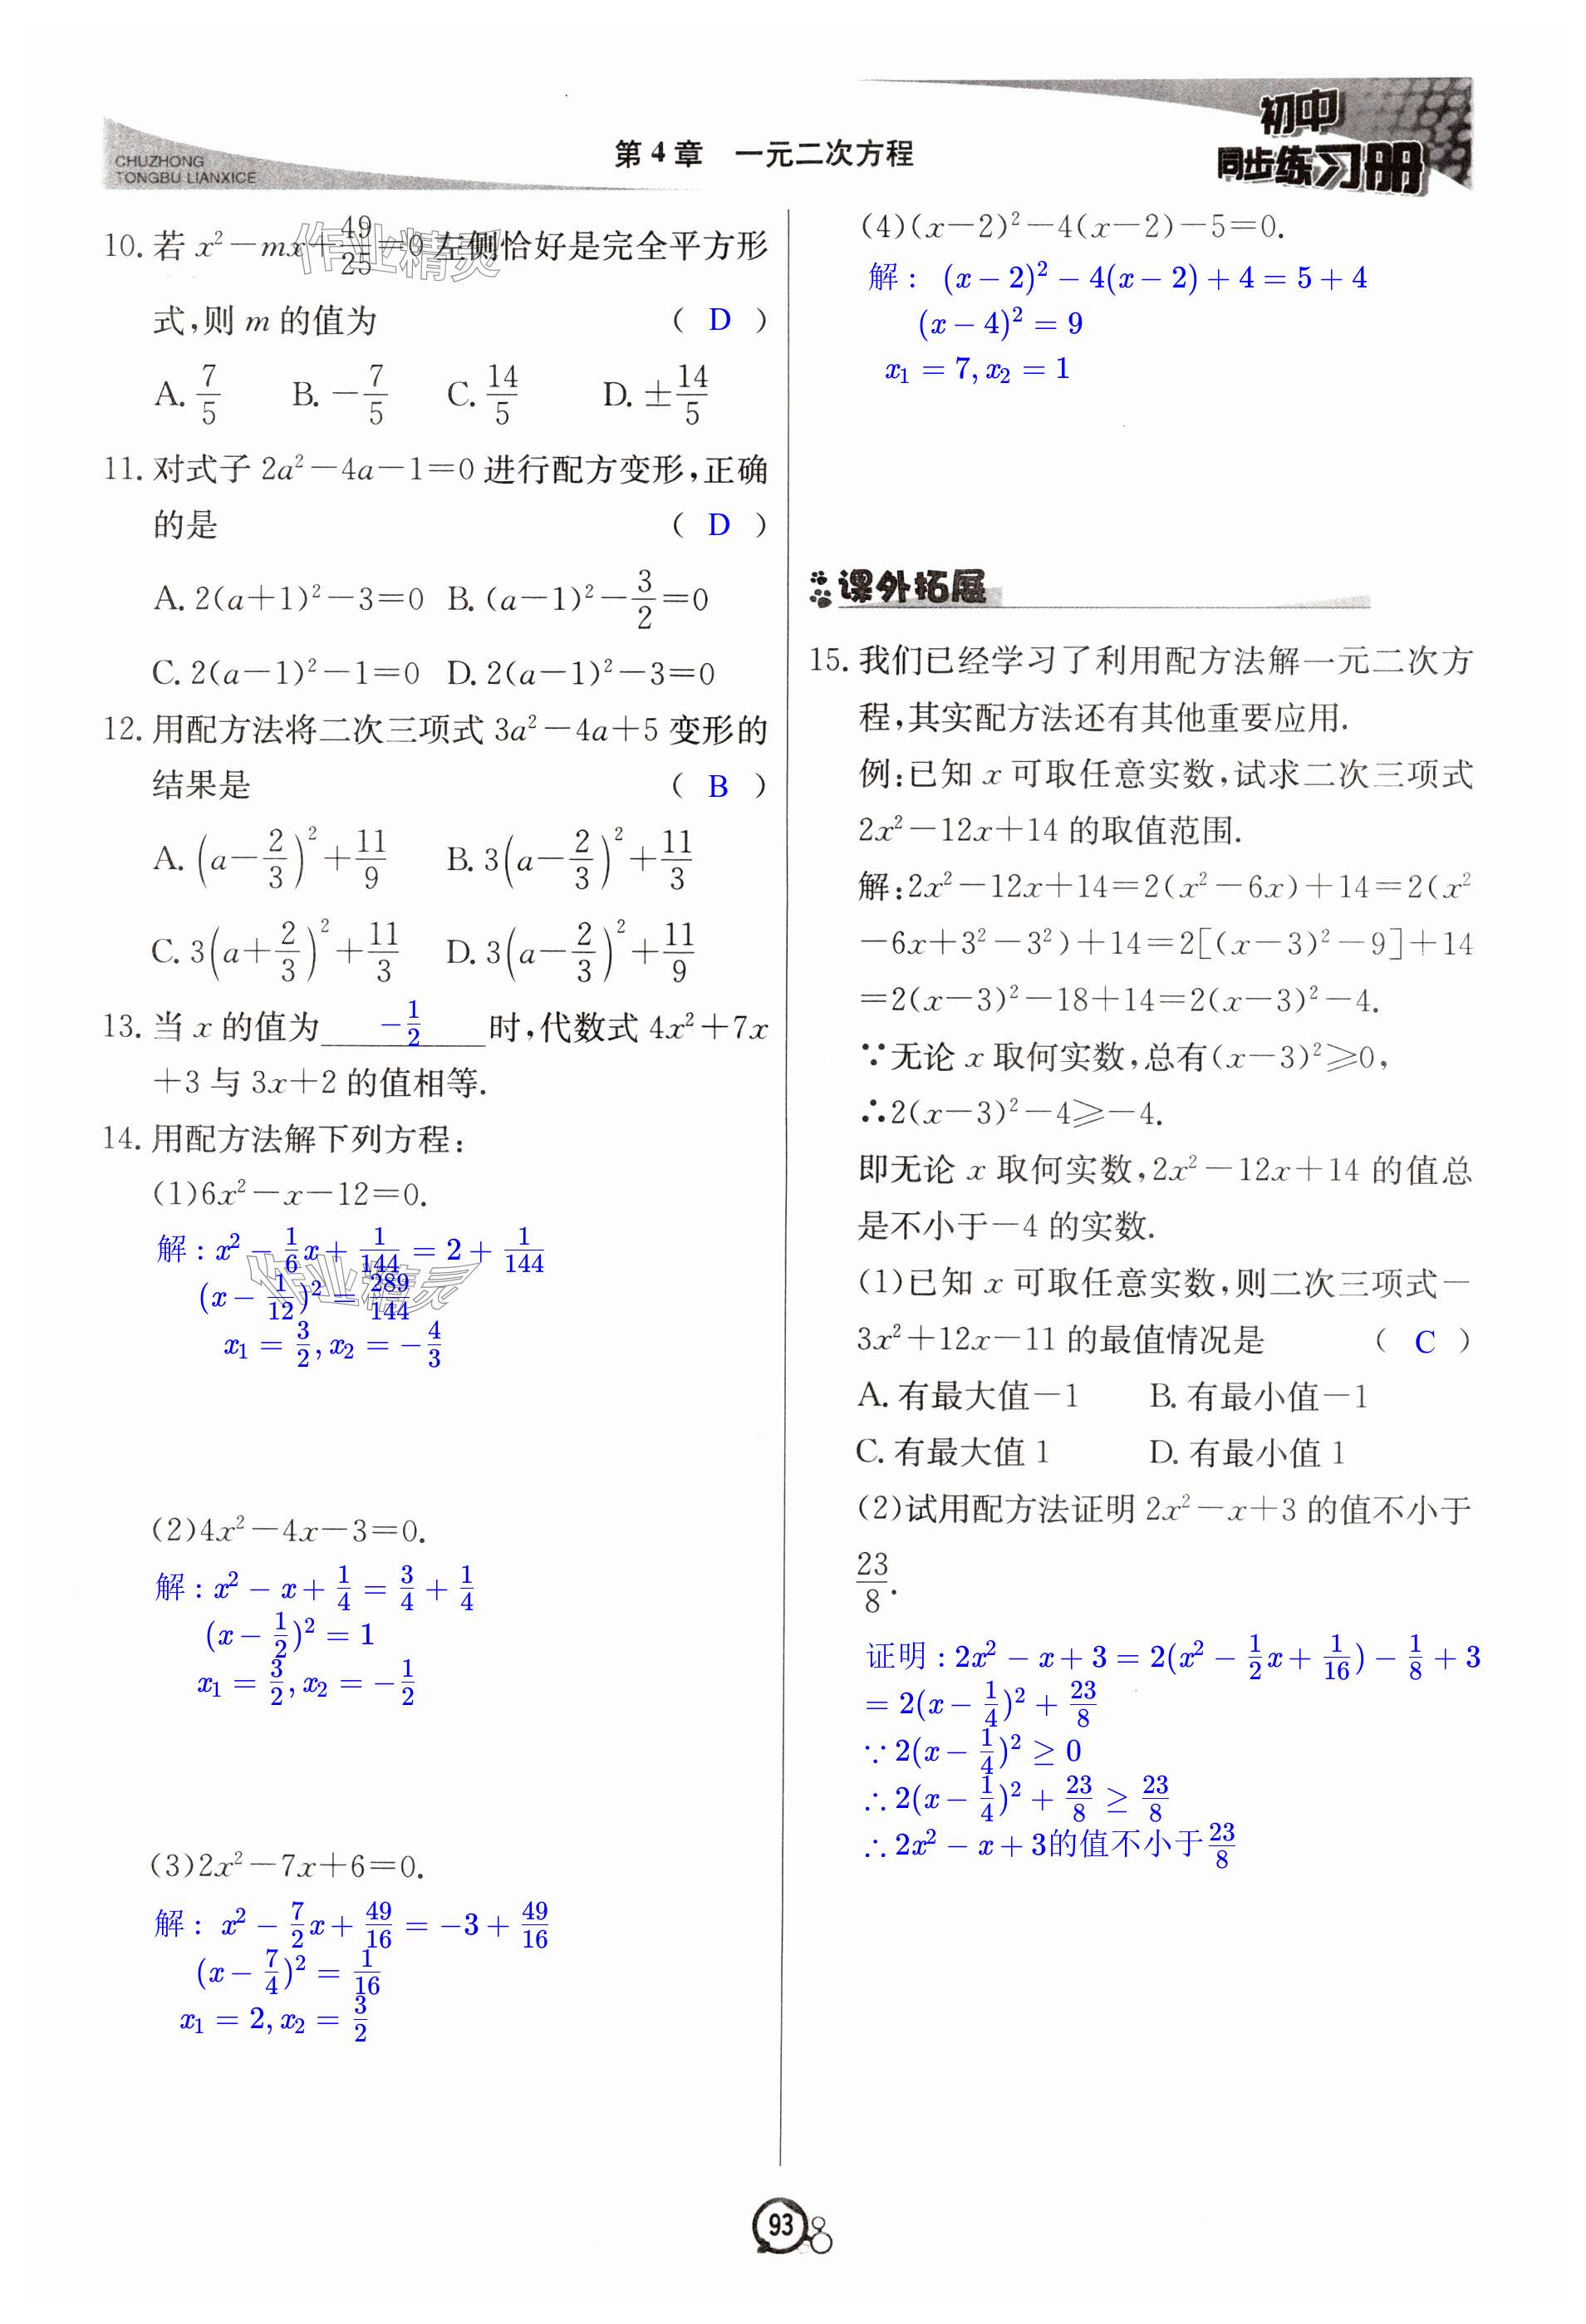 CHUZHONG
TONGBU LIANXICE
第4章 一元二次方程
初中
同步练习册
10. 若 x²－mx＋49/25＝0 左侧恰好是完全平方形
式,则 m 的值为 （ D ）
A. 7/5 B. －7/5 C. 14/5 D. ±14/5
11. 对式子 2a²－4a－1＝0 进行配方变形,正确
的是 （ D ）
A. 2(a＋1)²－3＝0 B. (a－1)²－3/2＝0
C. 2(a－1)²－1＝0 D. 2(a－1)²－3＝0
12. 用配方法将二次三项式 3a²－4a＋5 变形的
结果是 （ B ）
A. (a－2/3)²＋11/9 B. 3(a－2/3)²＋11/3
C. 3(a＋2/3)²＋11/3 D. 3(a－2/3)²＋11/9
13. 当 x 的值为 －1/2 时,代数式 4x²＋7x
＋3 与 3x＋2 的值相等.
14. 用配方法解下列方程:
(1)6x²－x－12＝0.
解 : x² − 1/6 x + 1/144 = 2 + 1/144
(x − 1/12)² = 289/144
x₁ = 3/2, x₂ = −4/3
(2)4x²－4x－3＝0.
解 : x² − x + 1/4 = 3/4 + 1/4
(x − 1/2)² = 1
x₁ = 3/2, x₂ = −1/2
(3)2x²－7x＋6＝0.
解 : x² − 7/2 x + 49/16 = −3 + 49/16
(x − 7/4)² = 1/16
x₁ = 2, x₂ = 3/2
(4)(x－2)²－4(x－2)－5＝0.
解 : (x − 2)² − 4(x − 2) + 4 = 5 + 4
(x − 4)² = 9
x₁ = 7, x₂ = 1
课外拓展
15. 我们已经学习了利用配方法解一元二次方
程,其实配方法还有其他重要应用.
例:已知 x 可取任意实数,试求二次三项式
2x²－12x＋14 的取值范围.
解:2x²－12x＋14＝2(x²－6x)＋14＝2(x²
－6x＋3²－3²)＋14＝2[(x－3)²－9]＋14
＝2(x－3)²－18＋14＝2(x－3)²－4.
∵无论 x 取何实数,总有(x－3)²≥0,
∴2(x－3)²－4≥－4.
即无论 x 取何实数,2x²－12x＋14 的值总
是不小于－4 的实数.
(1)已知 x 可取任意实数,则二次三项式－
3x²＋12x－11 的最值情况是 （ C ）
A. 有最大值－1 B. 有最小值－1
C. 有最大值 1 D. 有最小值 1
(2)试用配方法证明 2x²－x＋3 的值不小于
23/8.
证明 : 2x² − x + 3 = 2(x² − 1/2 x + 1/16) − 1/8 + 3
= 2(x − 1/4)² + 23/8
∵ 2(x − 1/4)² ≥ 0
∴ 2(x − 1/4)² + 23/8 ≥ 23/8
∴ 2x² − x + 3的值不小于23/8
93
作业精灵
作业精灵